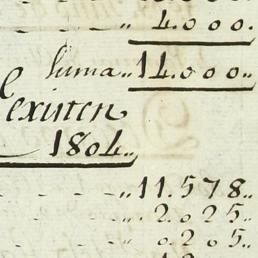 4.000.
suma.. 14.000..
existen
1804..
11.578..
2.025..
0.205..